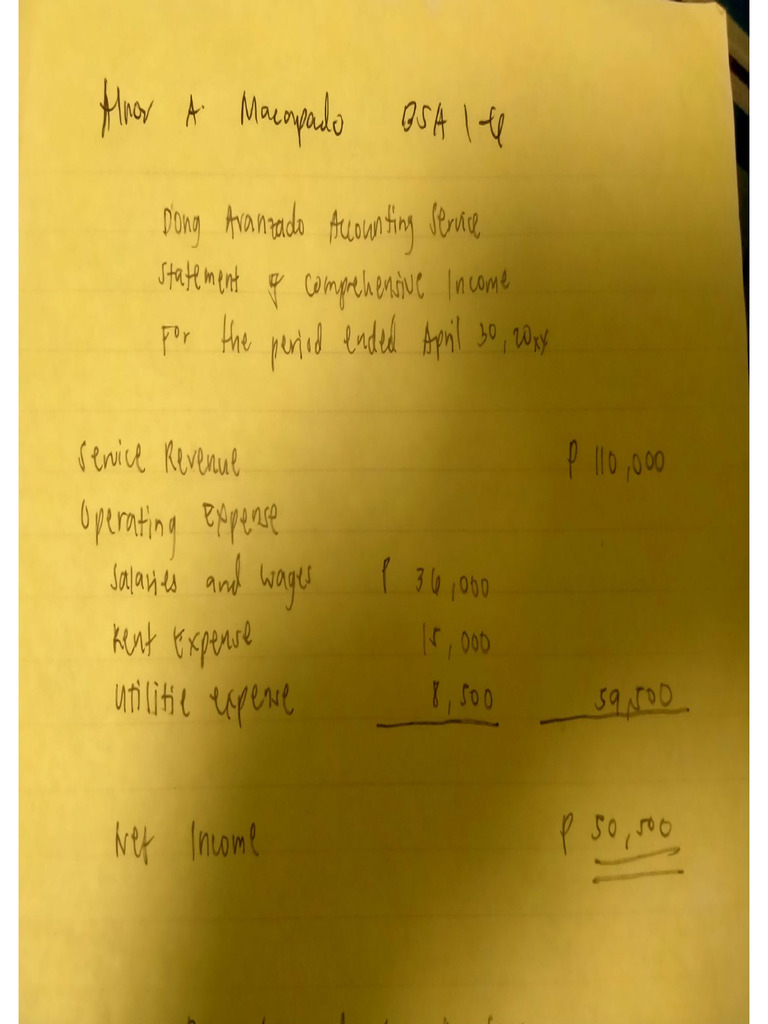 A. Macapado BSA 1-
Dong Avanzado Accounting Service
Statement of comprehensive Income
For the period ended April 30, 20xx
Service Revenue P 110,000
Operating Expense
Salaries and wages P 36,000
Rent Expense 15,000
Utilitie expense 8,500 59,500
Net Income P 50,500